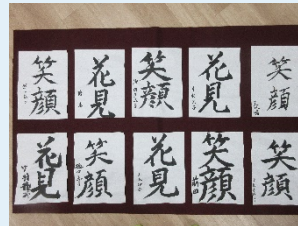 笑顔
花見
笑顔
花見
笑顔
花見
笑顔
花見
笑顔
笑顔